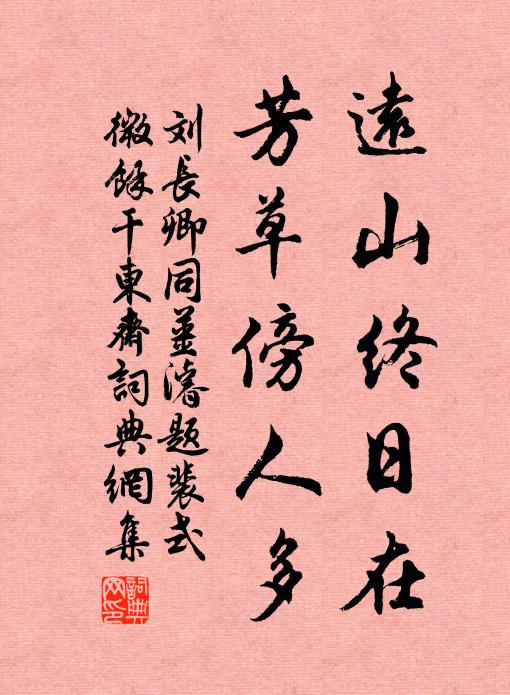 遠山終日在
芳草傍人多
刘長卿同薑濬題裴式
微餘干東齋詞典網集
詞典